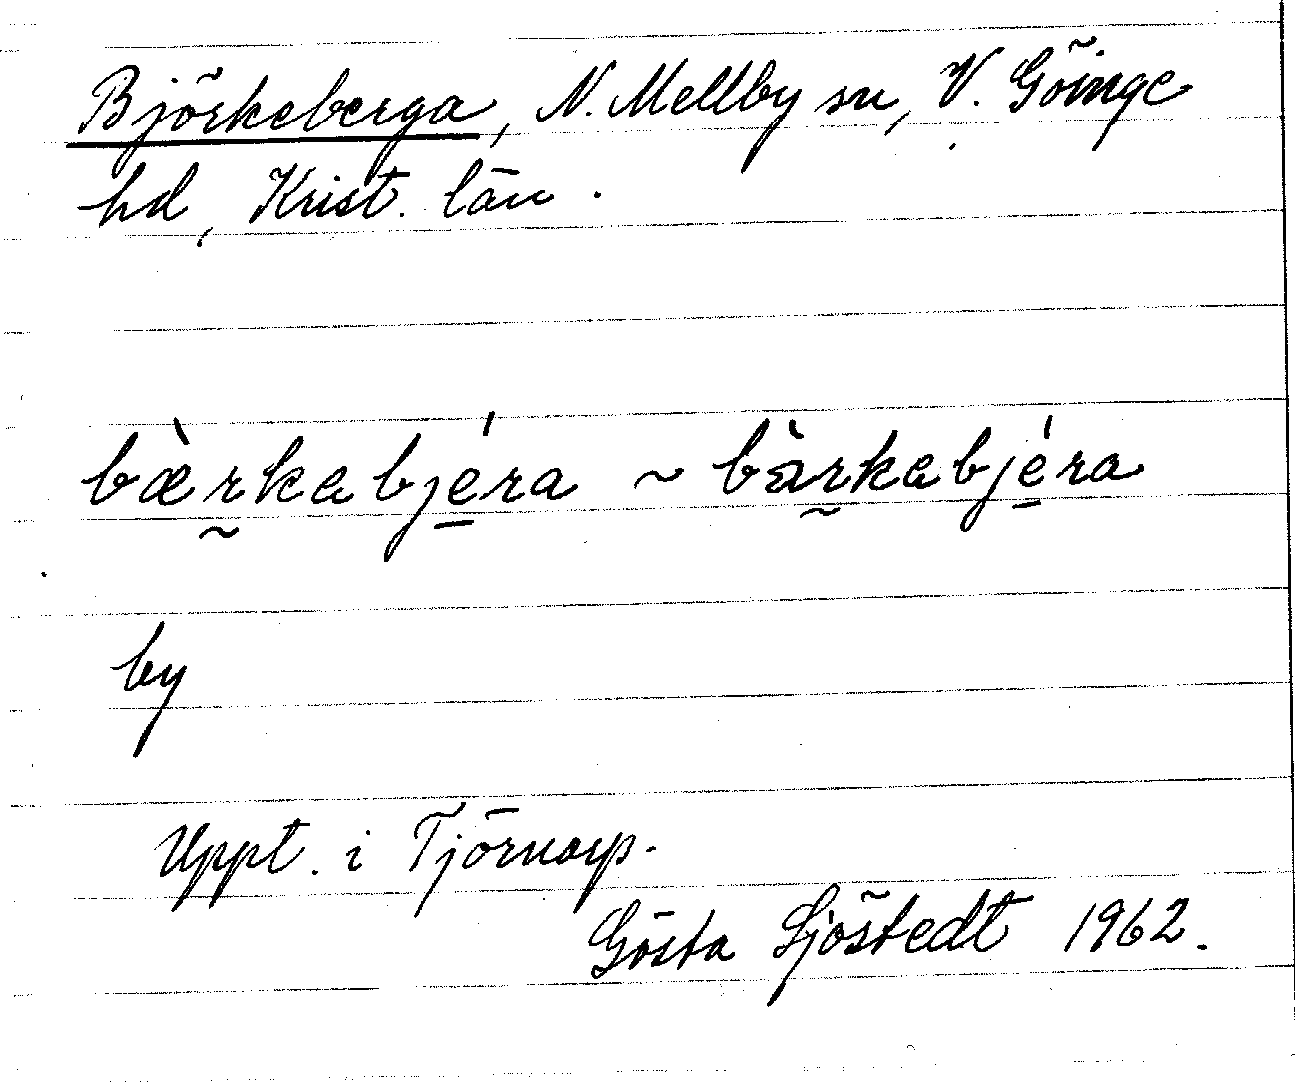 Björkeberga, N. Mellby sn, V. Göinge
hd, Krist. län.
bæ̀r̰kabjé̱ra ~ bär̰̀kabjé̱ra
by
Uppt. i Tjörnarp.
Gösta Sjöstedt 1962.